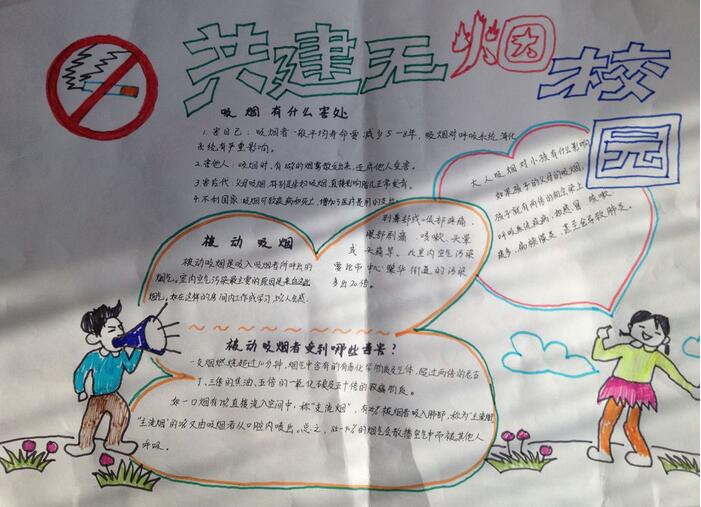 共建无烟校园
吸烟有什么害处
1.害自己：吸烟者一般平均寿命要减少5-8年，吸烟对呼吸系统，消化
系统有严重影响。
2.害他人：吸烟时，有的烟雾散出来，近旁他人受害。
3.害后代：父母吸烟，特别是孕妇吸烟直接影响胎儿正常发育。
4.不利国家：吸烟可致疾病和死亡，增加了医疗费用的支出
大人吸烟对小孩有什么影响
如果孩子的父母的吸烟，
孩子就有两倍的机会染上
呼吸系统疾病，如感冒、咳嗽
被动吸烟
被动吸烟是吸入吸烟者所呼出的
烟气，室内空气污染最主要的原因是来自
烟气，如在这样的房间内工作或学习，
到鼻部或一般部疼痛、
眼部刺痛、咳嗽、头晕
或头痛等。在室内空气污染
要比市中心繁华街道的污染
多出20倍。
被动吸烟者受到哪些毒害？
一支烟燃烧超过10分钟，烟气中含有的有毒化学物质及气体，超过两倍的尼古
丁、三倍的焦油、五倍的一氧化碳及五十倍的致癌物质。
如一口烟有 直接流入空间中，称“支流烟”，有 被吸烟者吸入肺部，称为“主流烟”
“主流烟”的 又由吸烟者从口腔内喷出。总之， 的烟气会散播空气中而被其他人
呼吸。